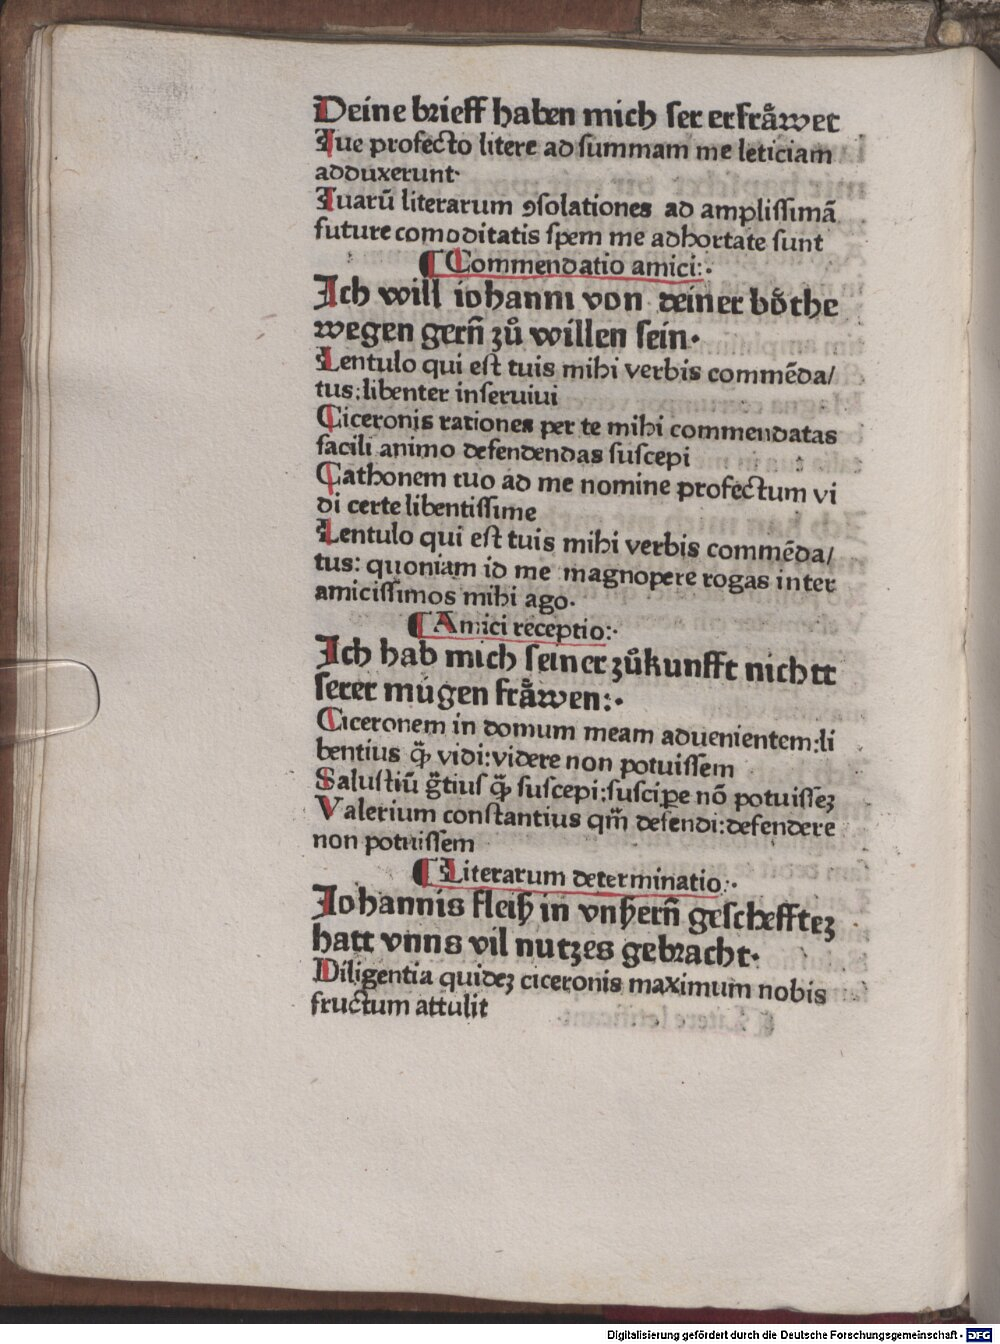 Deine brieff haben mich ser erfråwet
Tue profecto litere ad summam me leticiam
adduxerunt·
Tuarū literarum ꝯsolationes ad amplissimā
future comoditatis spem me adhortate sunt
¶ Commendatio amici:·
Ich will iohanni von deiner bo̊the
wegen gern̄ zů willen sein·
Lentulo qui est tuis mihi verbis commēda/
tus:libenter inseruiui
Ciceronis rationes per te mihi commendatas
facili animo defendendas suscepi
Cathonem tuo ad me nomine profectum vi
di certe libentissime
Lentulo qui est tuis mihi verbis commēda/
tus: quoniam id me magnopere rogas inter
amicissimos mihi ago·
¶ Amici receptio:·
Ich hab mich seiner zůkunfft nichtt
serer mugen fråwen:·
Ciceronem in domum meam aduenientem:li
bentius q̄ȝ vidi:videre non potuissem
Salustiū g̈tius q̄ȝ suscepi:suscipe nō potuisseȝ
Valerium constantius qm̄ defendi:defendere
non potuissem
¶ Literarum determinatio:·
Johannis fleiß in vnßern̄ gescheffteȝ
hatt vnns vil nutzes gebracht·
Diligentia quideȝ ciceronis maximum nobis
fructum attulit
Digitalisierung gefördert durch die Deutsche Forschungsgemeinschaft - DFG